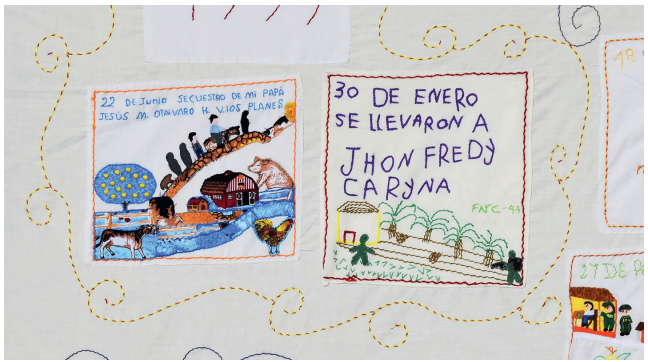 22 DE JUNIO SECUESTRO DE MI PAPÁ
JESÚS M. OTALVARO H. V. LOS PLANES
30 DE ENERO
SE LLEVARON A
JHON FREDY
CARYNA
18
27 DE